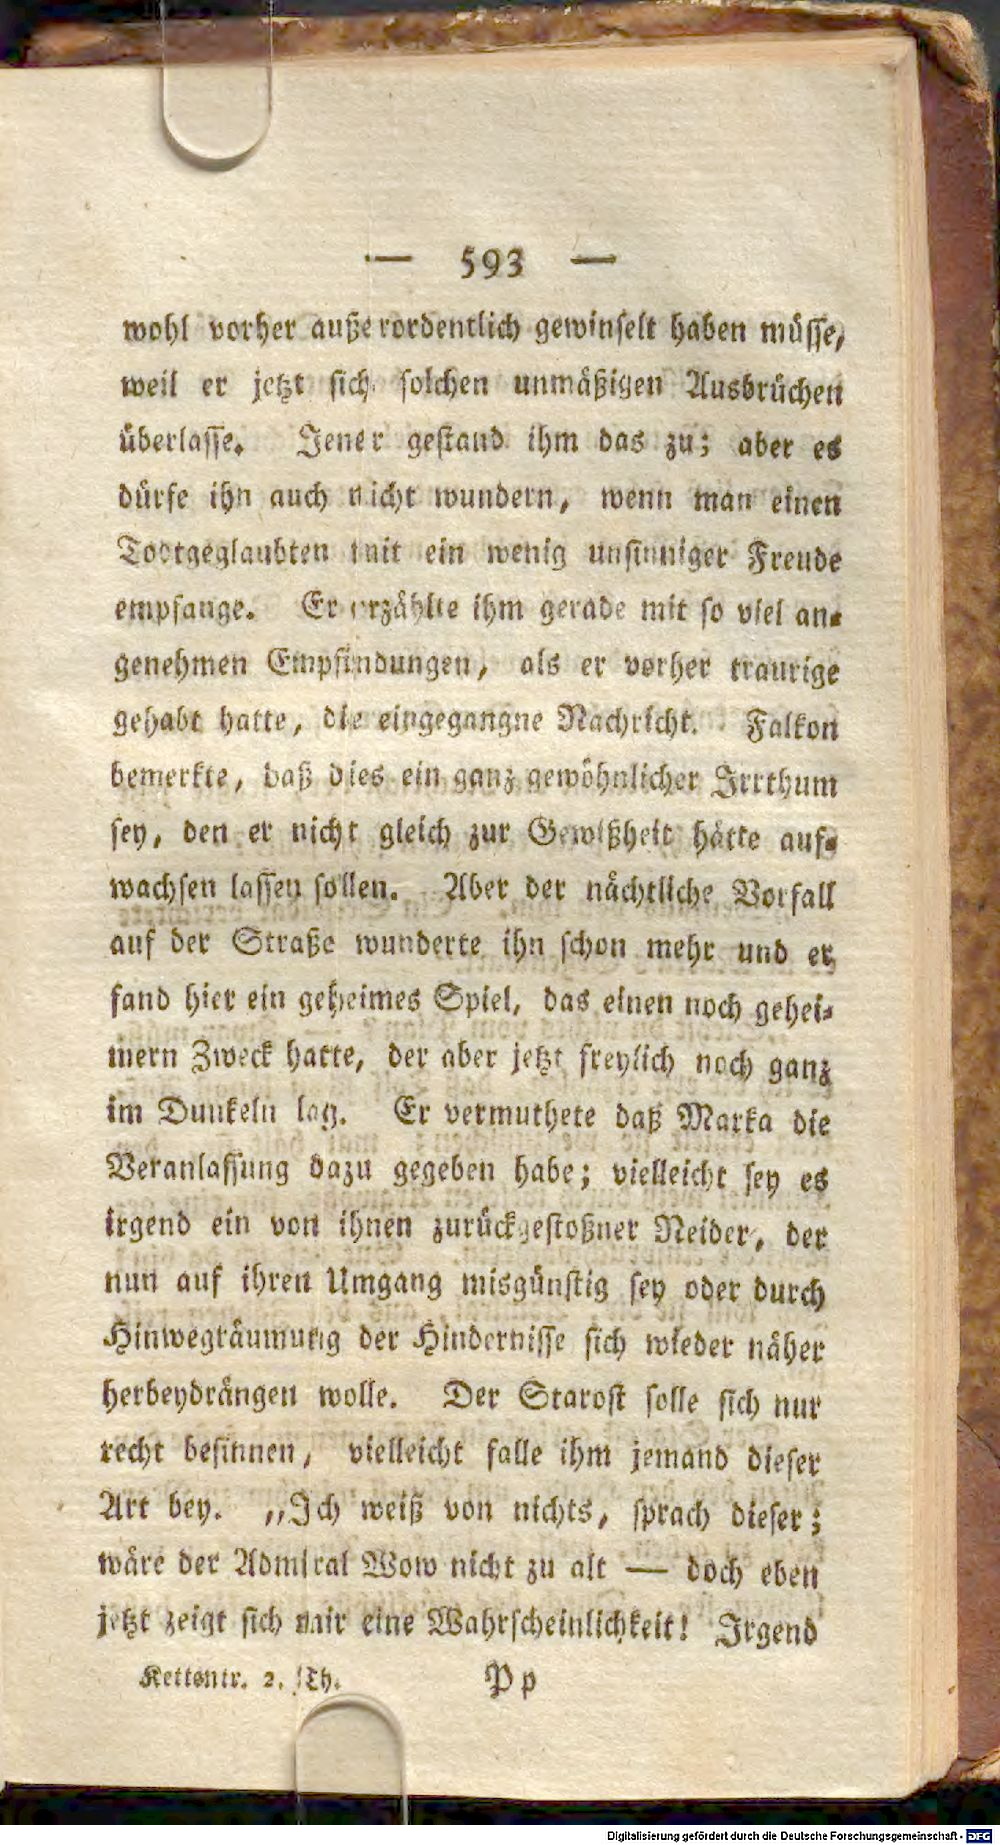 — 593 —
wohl vorher außerordentlich gewinselt haben müsse,
weil er jetzt sich solchen unmäßigen Ausbrüchen
überlasse. Jener gestand ihm das zu; aber es
dürfe ihn auch nicht wundern, wenn man einen
Todtgeglaubten mit ein wenig unsinniger Freude
empfange. Er erzählte ihm gerade mit so viel an-
genehmen Empfindungen, als er vorher traurige
gehabt hatte, die eingegangne Nachricht. Falkon
bemerkte, daß dies ein ganz gewöhnlicher Irrthum
sey, den er nicht gleich zur Gewißheit hätte auf-
wachsen lassen sollen. Aber der nächtliche Vorfall
auf der Straße wunderte ihn schon mehr und er
fand hier ein geheimes Spiel, das einen noch gehei-
mern Zweck hatte, der aber jetzt freylich noch ganz
im Dunkeln lag. Er vermuthete daß Marka die
Veranlassung dazu gegeben habe; vielleicht sey es
irgend ein von ihnen zurückgestoßner Neider, der
nun auf ihren Umgang misgünstig sey oder durch
Hinwegräumung der Hindernisse sich wieder näher
herbeydrängen wolle. Der Starost solle sich nur
recht besinnen, vielleicht falle ihm jemand dieser
Art bey. „Ich weiß von nichts, sprach dieser;
wäre der Admiral Wow nicht zu alt — doch eben
jetzt zeigt sich mir eine Wahrscheinlichkeit! Irgend
Kettentr. 2. Th. Pp
Digitalisierung gefördert durch die Deutsche Forschungsgemeinschaft - DFG